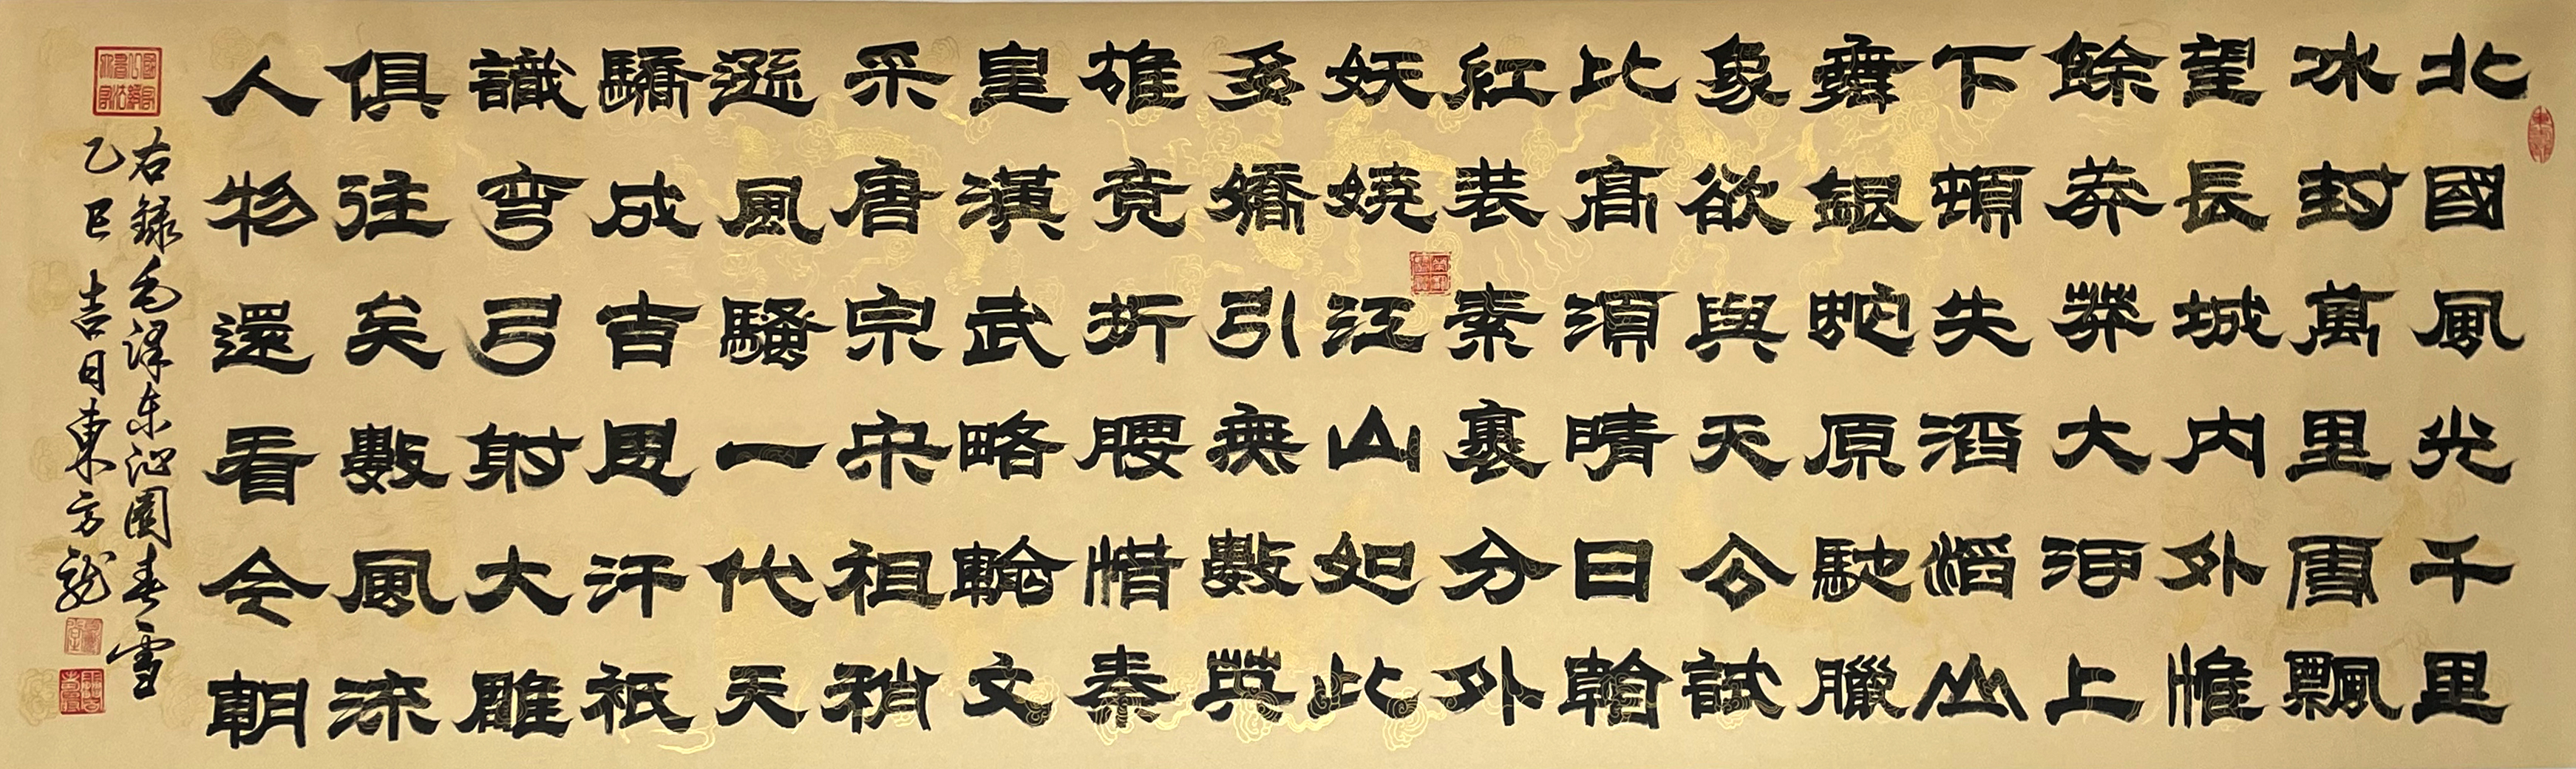 北國風光千里
冰封萬里雪飄
望長城内外惟
餘莽莽大河上
下頓失滔滔山
舞銀蛇原馳臘
象欲與天公試
比高須晴日看
紅装素裹分外
妖嬈江山如此
多嬌引無數英
雄竞折腰惜秦
皇漢武略輸文
采唐宗宋祖稍
遜風騷一代天
驕成吉思汗祇
識弯弓射大雕
俱往矣數風流
人物還看今朝
右録毛澤东沁園春雪
乙巳吉日東方龍